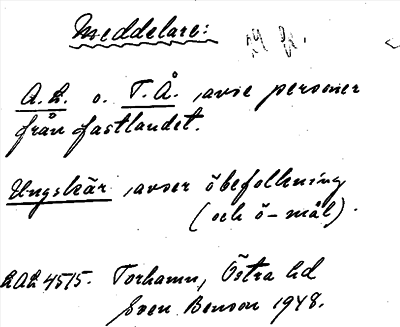 Meddelare:
A.L. o. T.Å. avse personer
från fastlandet.
Ungskär avser öbefolkning
(och ö-mål).
LAL 4515. Torhamn, Östra hd
Sven Benson 1948.